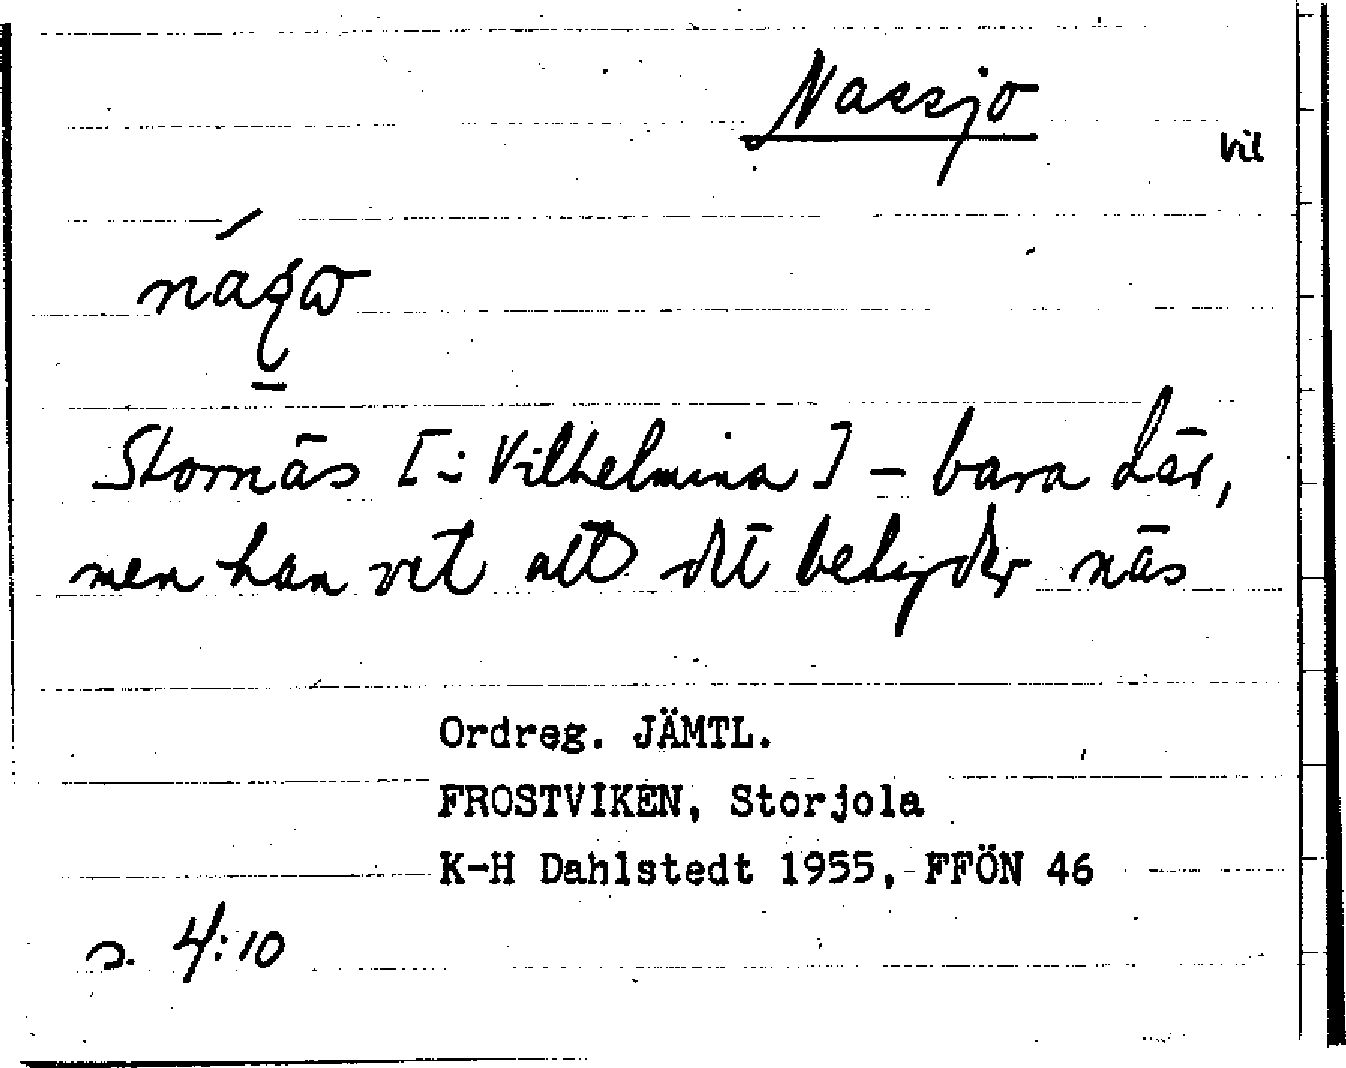 Nassjo
vil
Stornäs [i Vilhelmina] – bara där,
men han vet att det betyder näs
Ordreg. JÄMTL.
FROSTVIKEN, Storjola
K-H Dahlstedt 1955, FFÖN 46
s. 4:10